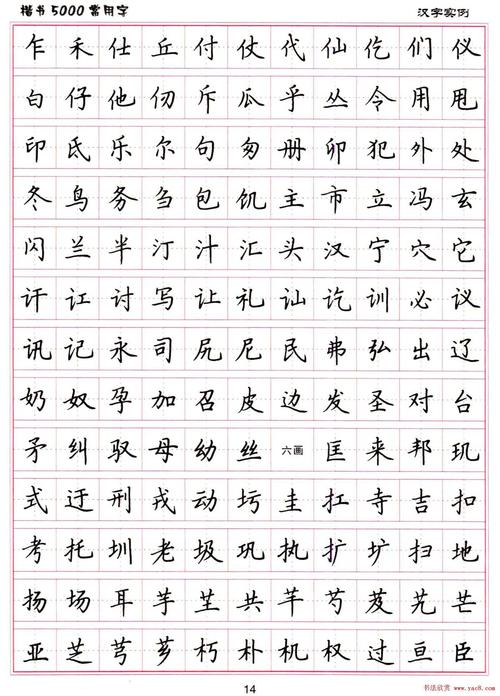 楷书5000常用字 汉字实例
乍禾仕丘付仗代仙仡们仪
白仔他仞斥瓜乎丛令用甩
印氐乐尔句匆册卯犯外处
冬鸟务刍包饥主市立冯玄
闪兰半汀汁汇头汉宁穴它
讦讧讨写让礼讪讫训必议
讯记永司尻尼民弗弘出辽
奶奴孕加召皮边发圣对台
矛纠驭母幼丝六画匡耒邦玑
式迂刑戎动圬圭扛寺吉扣
考托圳老圾巩执扩圹扫地
扬场耳芋芏共芊芍芨艽芒
亚芝芎芗朽朴机权过亘臣
14
书法欣赏 www.yac8.com